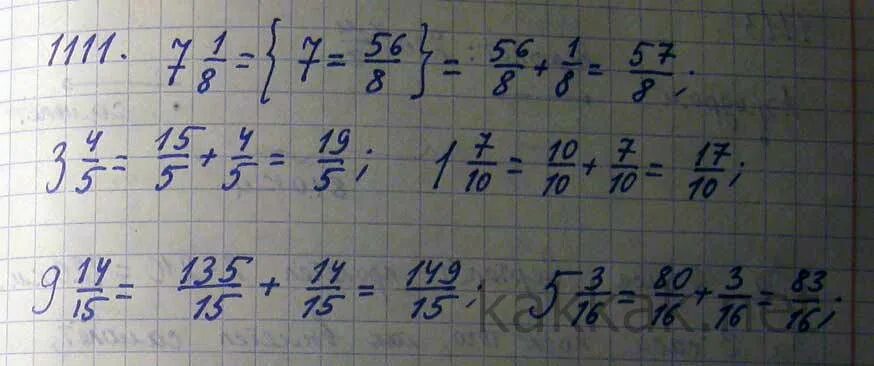 1111. 7 1/8 = { 7 = 56/8 } = 56/8 + 1/8 = 57/8 ;
3 4/5 = 15/5 + 4/5 = 19/5 ; 1 7/10 = 10/10 + 7/10 = 17/10 ;
9 14/15 = 135/15 + 14/15 = 149/15 ; 5 3/16 = 80/16 + 3/16 = 83/16 ;